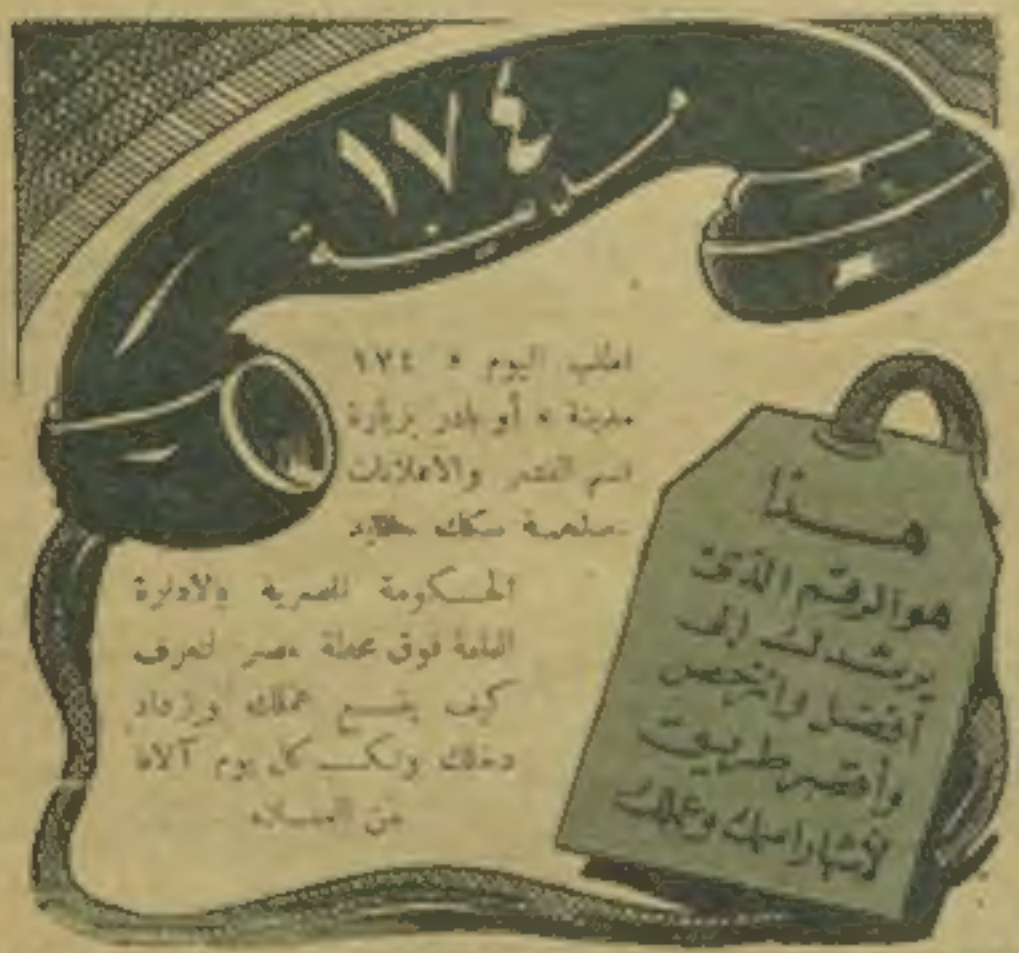 ١٧٤
مدينة
اطلب اليوم « ١٧٤
مدينة » أو بادر بزيارة
قسم النشر والاعلانات
بمصلحة سكك حديد
الحكومة المصرية بالادارة
العامة فوق محطة مصر لتعرف
كيف يتسع عملك ويزداد
دخلك وتكسب كل يوم آلافا
من العملاء
هذا
هو الرقم الذى
يرشدك إلى
أفضل وأرخص
وأقصر طريق
لاشهار اسمك وعملك